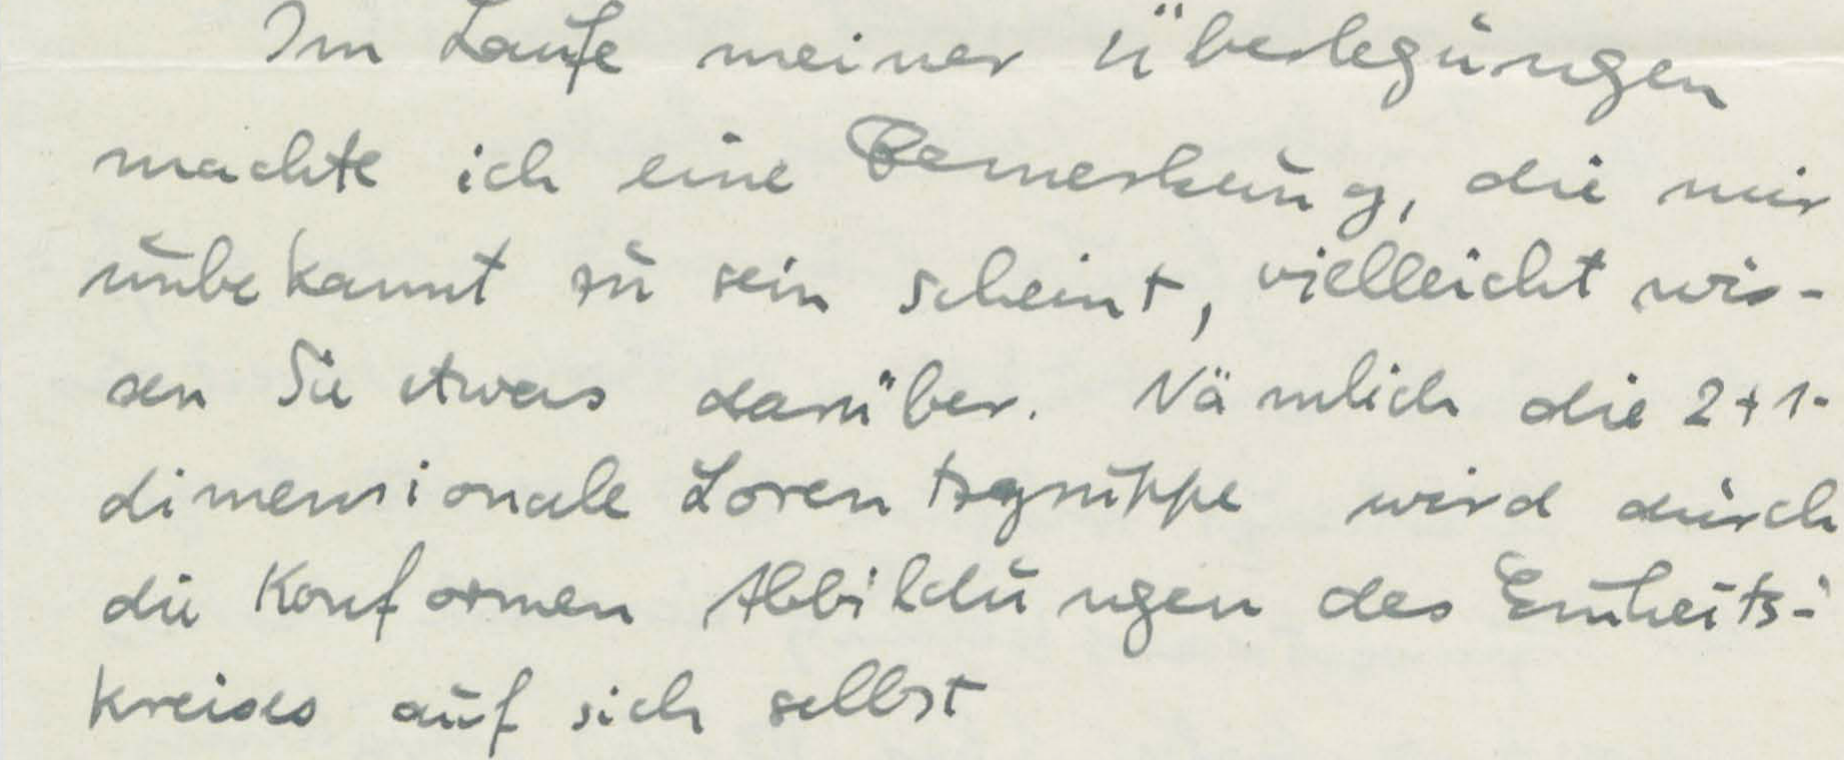 Im Laufe meiner Überlegungen
machte ich eine Bemerkung, die mir
unbekannt zu sein scheint, vielleicht wis-
sen Sie etwas darüber. Nämlich die 2+1-
dimensionale Lorentzgruppe wird durch
die konformen Abbildungen des Einheits-
kreises auf sich selbst